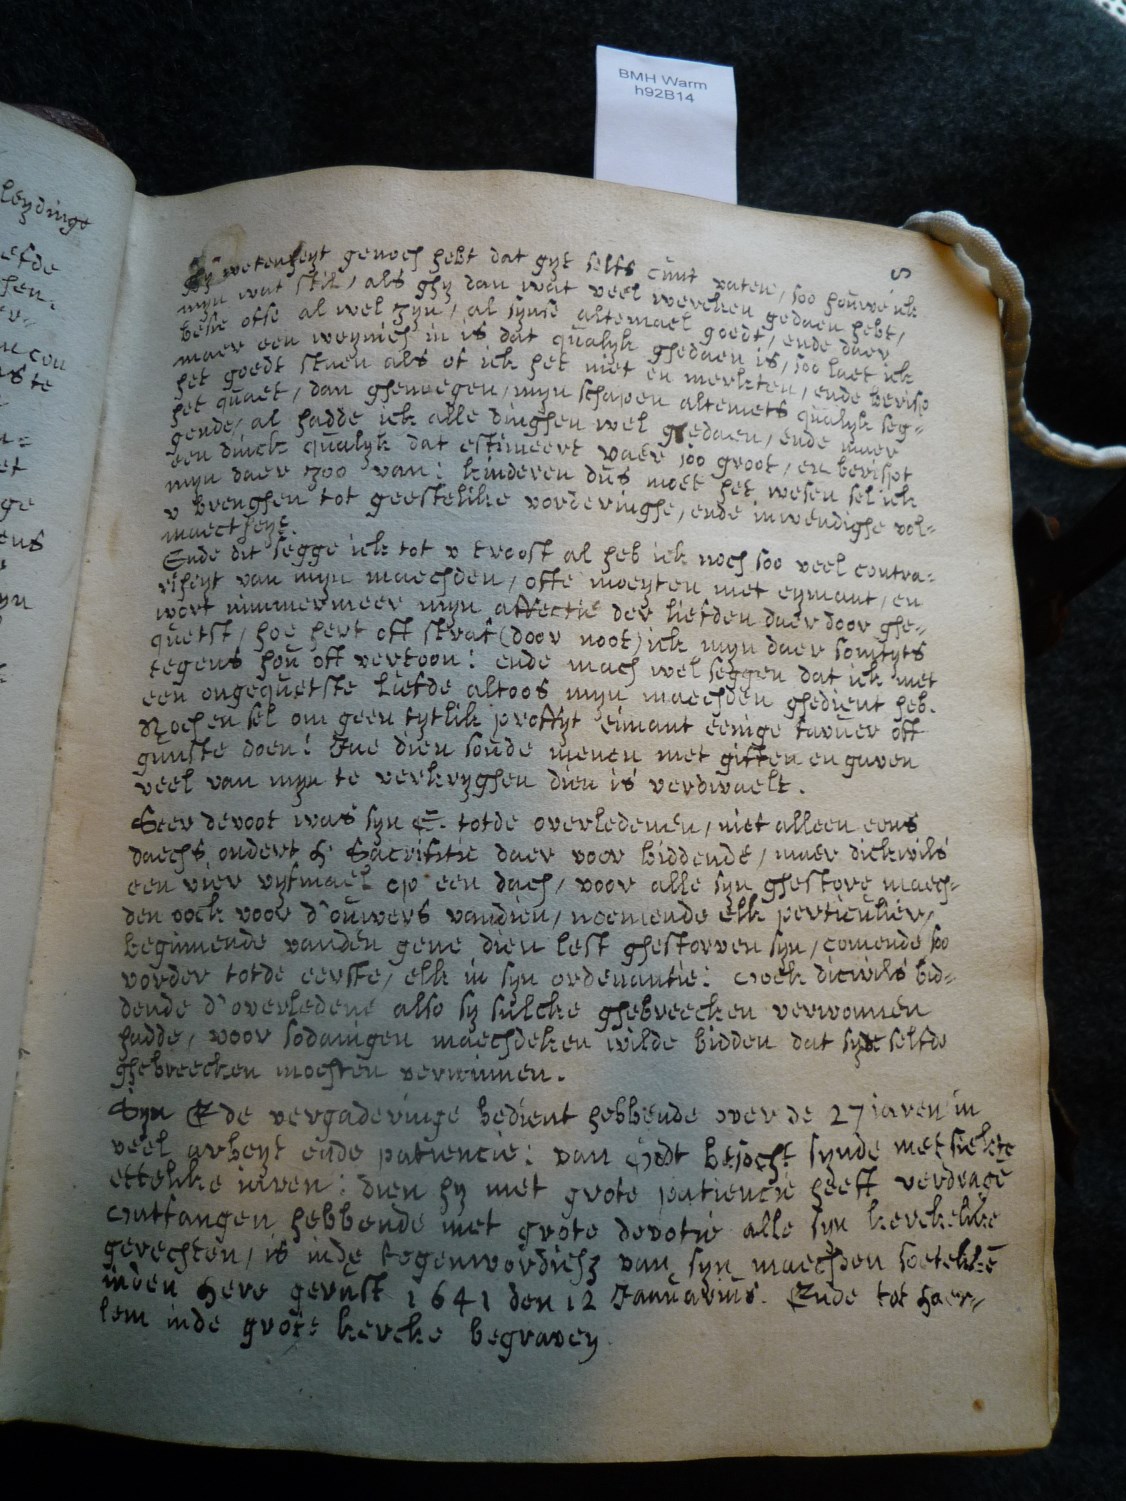 BMH Warm
h92B14
leydinge
5
ghy wetenheyt genoch hebt dat ghyt selfs cunt vaten, soo houwe ick
mijn wat stil, als ghy dan wat veel wercken gedaen hebt,
besie ofse al wel zijn, al sijnse altemael goedt, ende daer
maer een weynich in is dat qualijk ghedaen is, soo laet ick
het goedt staen als of ick het niet en merkten, ende berispe
het quaet, dan ghenoegen mijn schapen altemets qualijk seg-
gende, al hadde ick alle dinghen wel gedaen, ende maer
een dinck qualijk dat estimeert vaer soo groot, en berispt
mijn daer zoo van: kinderen dus moet het wesen sel ick
v brenghen tot geestelike vorderinghe, ende inwendighe vol-
maectheyt.
Ende dit segge ick tot v troost al heb ick noch soo veel contra-
riheyt van mijn maechden, ofte moeyten met eymant, en
wort nimmermeer mijn affectie der liefden daer door ghe-
quetst, hoe hert off straf (door noot) ick mijn daer somtyts
tegens hou off vertoon: ende mach wel seggen dat ick met
een ongequetste liefde altoos mijn maechden ghedient heb.
Noch en sel om geen tytlik proffyt eimant eenige faveur off
gunste doen: Jae dien soude menen met giften en gaven
veel van mijn te verkryghen dien is verdwaelt.
Seer devoot was syn E. totde overledenen, niet alleen eens
daechs ondert H. Sacrifitie daer voor biddende, maer dickwils
een vier vyfmael op een dach, voor alle syn ghestorve maech-
den oock voor d'ouwers vandien, noemende elk perticulier,
beginnende vanden gene dien lest ghestorven syn, comende soo
vorder totde eerste, elk in syn ordenantie: oock dicwils bid-
dende d'overledene also sy sulcke ghebreecken verwonnen
hadde, voor sodanigen maechdeken wilde bidden dat syde selfde
ghebreecken mochten verwinnen.
Syn E de vergaderinge bedient hebbende over de 27 jaren in
veel arbeyt ende patiencie: van Godt besocht synde met siekte
ettelike iaren: dien hy met grote patiencie heeft verdrage
Ontfangen hebbende met grote devotie alle syn kerckelike
gerechten, is inde tegenwordichz van syn maechden soetelikē
inden Here gerust 1641 den 12 Januarius. Ende tot Haer-
lem inde grote kercke begraven